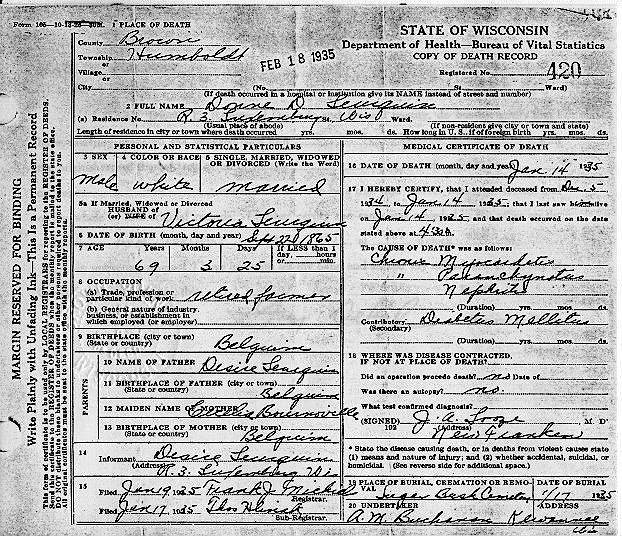 Form 105—10-13-25 50M. 1 PLACE OF DEATH
County Brown
Township Humboldt
or
Village
or
City (No. St., Ward)
FEB 18 1935
STATE OF WISCONSIN
Department of Health—Bureau of Vital Statistics
COPY OF DEATH RECORD
Registered No. 420
(If death occurred in a hospital or institution give its NAME instead of street and number)
2 FULL NAME D.
(a) Residence No. R. 3. Luxemburg St., Wis Ward.
(Usual place of abode) (If non-resident give city or town and state)
Length of residence in city or town where death occurred yrs. mos. ds. How long in U. S., if of foreign birth yrs. mos. ds.
MARGIN RESERVED FOR BINDING
Write Plainly with Unfading Ink—This is a Permanent Record
PERSONAL AND STATISTICAL PARTICULARS
3 SEX Male
4 COLOR OR RACE white
5 SINGLE, MARRIED, WIDOWED
OR DIVORCED (Write the Word)
married
5a If Married, Widowed or Divorced
HUSBAND OF
(or) WIFE OF Victoria
6 DATE OF BIRTH (month, day and year) Sept 22d 1865
7 AGE Years Months Days If LESS than 1
day, hours
or min.
69 3 25
8 OCCUPATION
(a) Trade, profession or
particular kind of work retired farmer
(b) General nature of industry,
business, or establishment in
which employed (or employer)
9 BIRTHPLACE (city or town)
(State or country) Belguim
PARENTS
10 NAME OF FATHER Desire
11 BIRTHPLACE OF FATHER (city or town)
(State or country) Belguim
12 MAIDEN NAME OF MOTHER
13 BIRTHPLACE OF MOTHER (city or town)
(State or country) Belguim
14
Informant Desire
(Address) R. 3. Luxemburg Wi
15
Filed Jan 19 1935 Frank J.
Registrar.
Filed Jan 17 1935
Sub-Registrar.
MEDICAL CERTIFICATE OF DEATH
16 DATE OF DEATH (month, day and year) Jan 14 1935
17 I HEREBY CERTIFY, that I attended deceased from Dec. 5
1934 to Jan 14 1935, that I last saw him alive
on Jan 14 1935 and that death occurred on the date
stated above at
The CAUSE OF DEATH* was as follows:
Chronic Myocarditis
" Parenchymatous
Nephritis
(Duration) yrs. mos. ds.
Contributory Diabetes Mellitus
(Secondary)
(Duration) yrs. mos. ds.
18 WHERE WAS DISEASE CONTRACTED,
IF NOT AT PLACE OF DEATH?
Did an operation precede death? no Date of
Was there an autopsy? no.
What test confirmed diagnosis?
(SIGNED) M D
193 (Address) New Franken
* State the disease causing death, or in deaths from violent causes state
(1) means and nature of injury; and (2) whether accidental, suicidal, or
homicidal. (See reverse side for additional space.)
19 PLACE OF BURIAL, CREMATION OR REMO-
VAL DATE OF BURIAL
Sugar Bush Cemetery 1/17 1935
20 UNDERTAKER ADDRESS
A. M. Buchanan Kewaunee
Wis